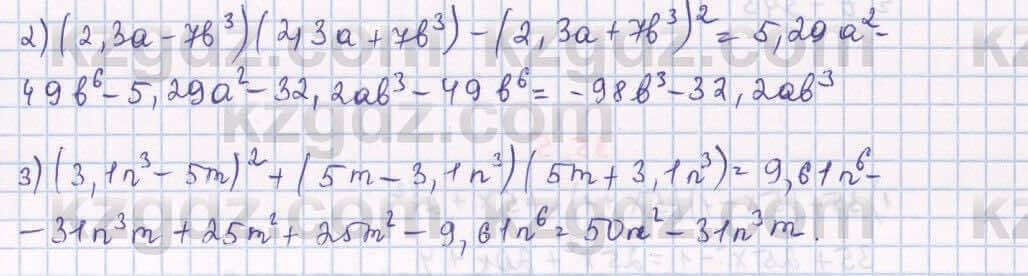 2) (2,3a - 7b³)(2,3a + 7b³) - (2,3a + 7b³)² = 5,29a² -
49b⁶ - 5,29a² - 32,2ab³ - 49b⁶ = -98b³ - 32,2ab³
3) (3,1n³ - 5m)² + (5m - 3,1n³)(5m + 3,1n³) = 9,61n⁶ -
- 31n³m + 25m² + 25m² - 9,61n⁶ = 50m² - 31n³m.
kzgdz.com